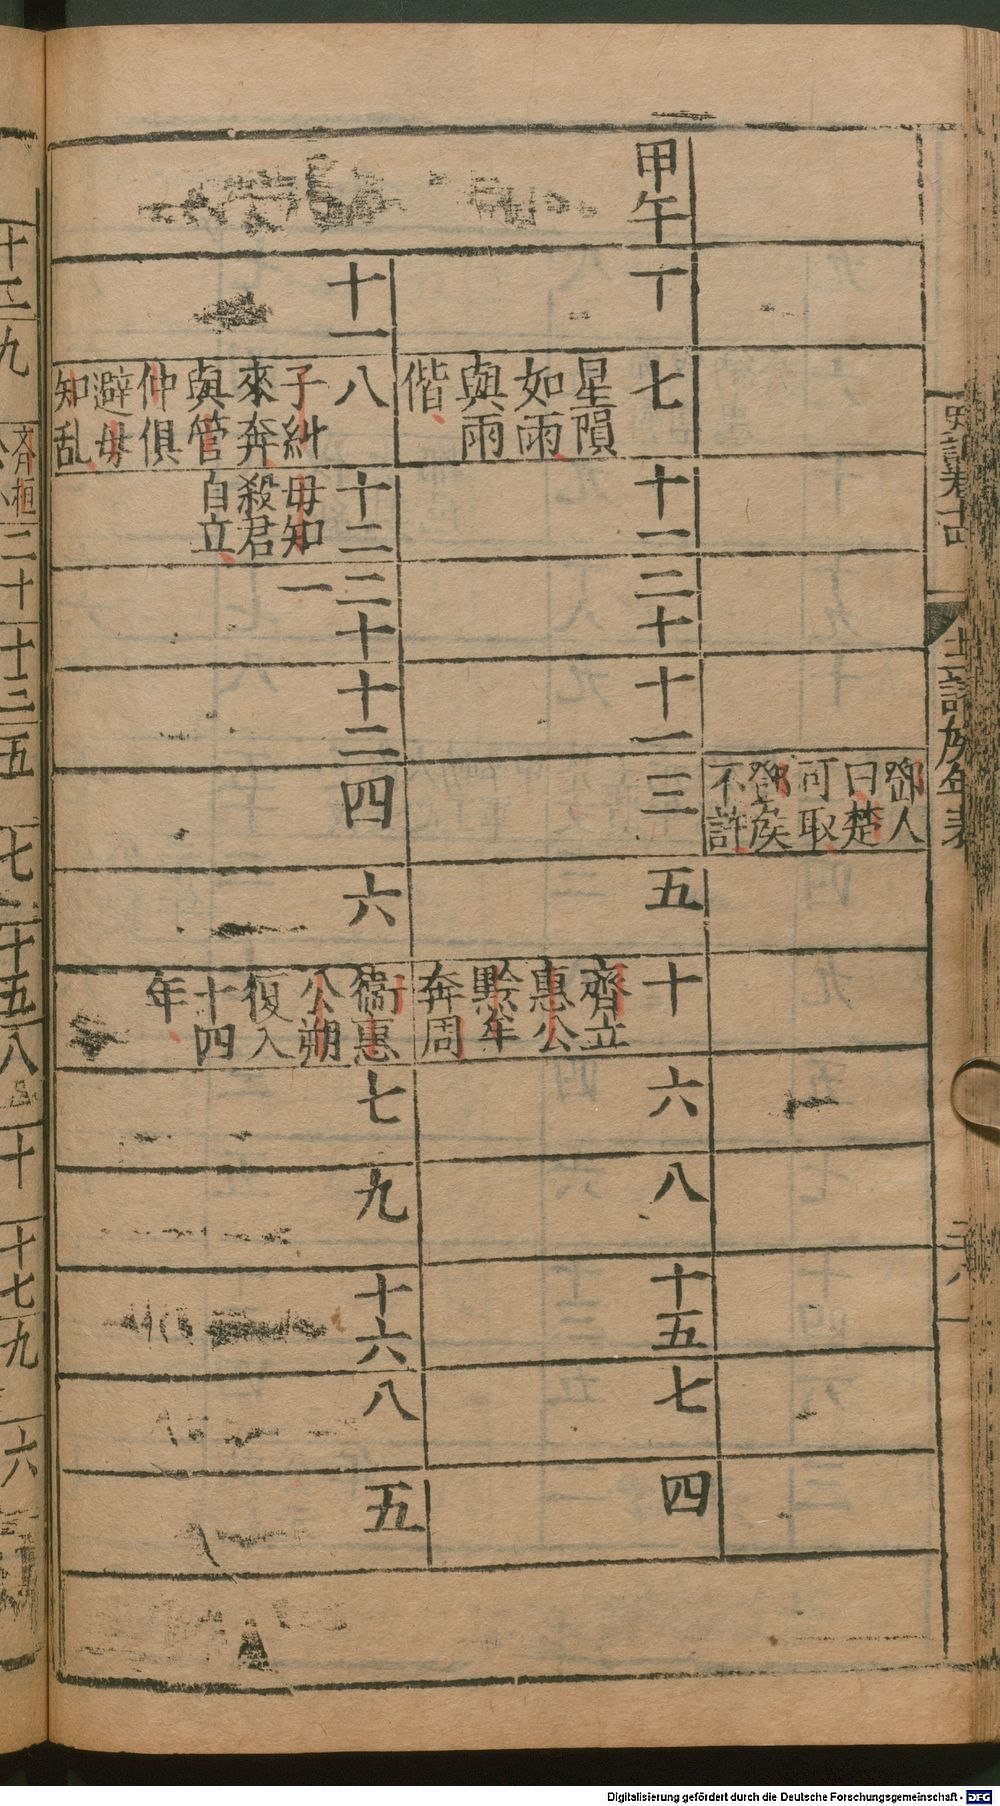 史記卷十四
十二諸侯年表
鄧人
曰楚
可取
鄧侯
不許
甲午
丁
七
星隕
如雨、
與雨
偕、
十一
二十
十一
三
五
十
齊立
惠公
黔牟
奔周、
六
八
十五
七
四
十一
八
子糾
來奔、
與管
仲俱
避毋
知乱、
十二
毋知
殺君
自立、
二十
一
十二
四
六
衞惠
公朔
復入
十四
年、
七
九
十六
八
五
十二
九
齊桓
二十
十三
五
七
十五
八
十
十七
九
六
Digitalisierung gefördert durch die Deutsche Forschungsgemeinschaft - DFG